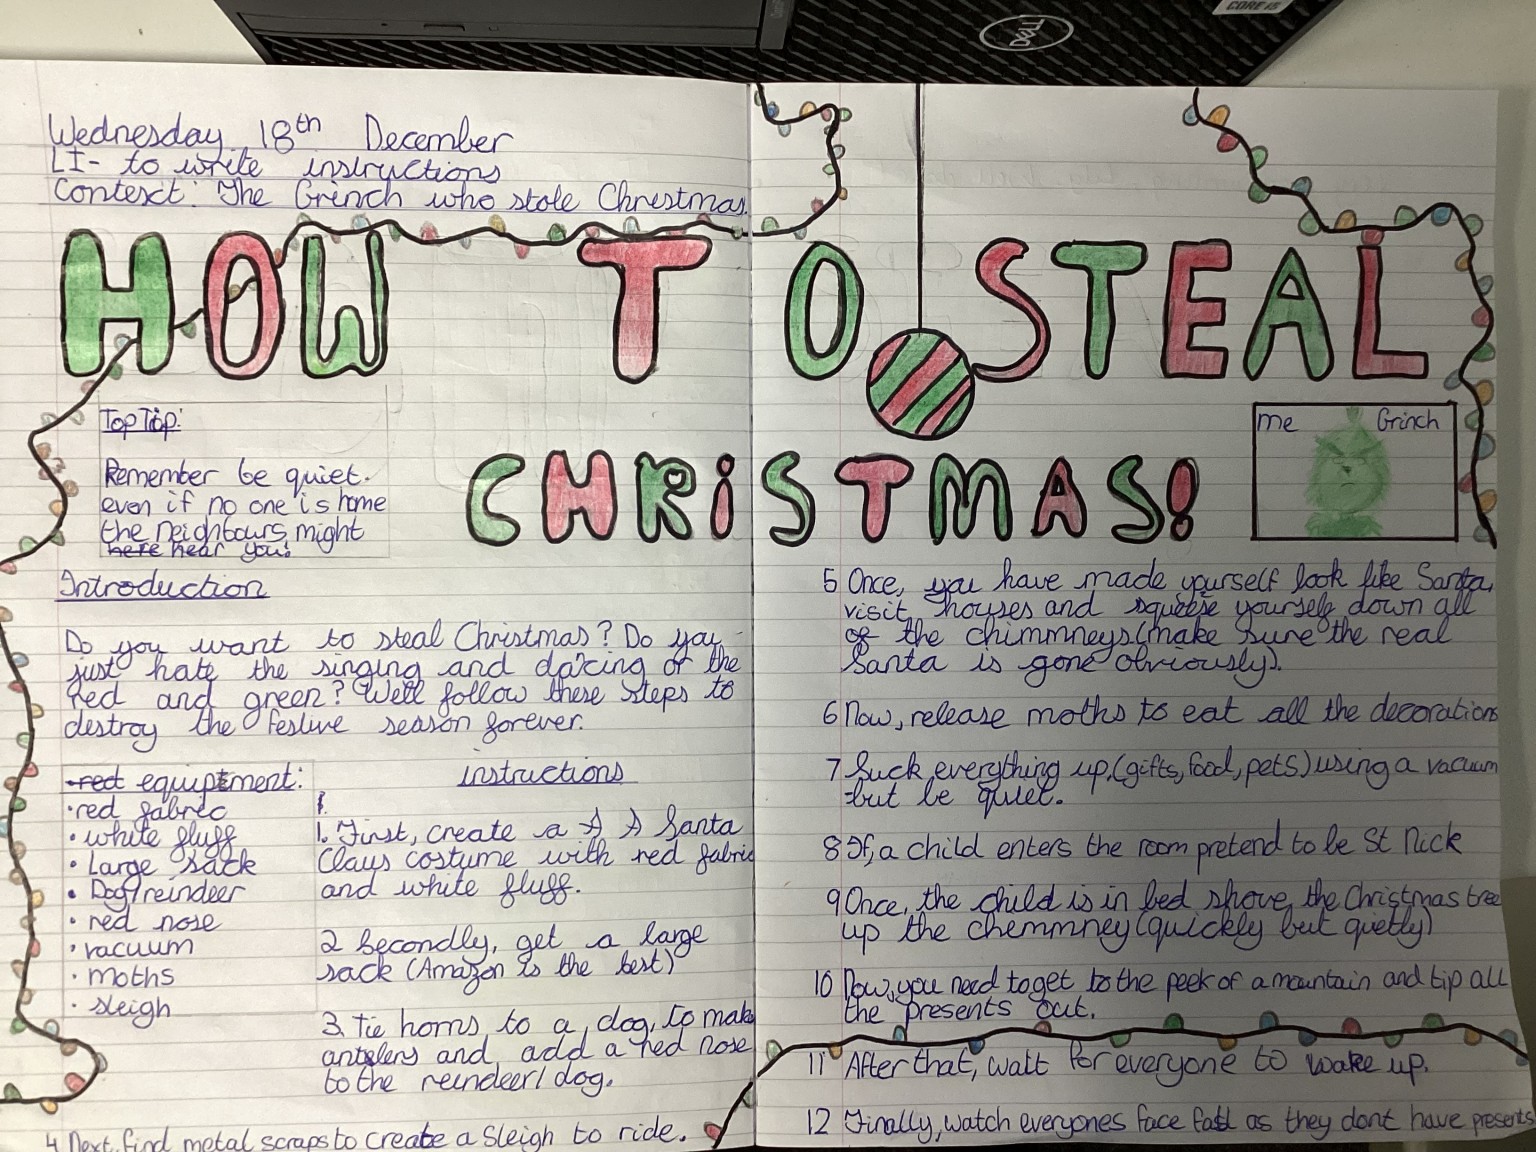 CORE i5
DELL
Wednesday 18th December
LI- to write instructions
Context: The Grinch who stole Christmas.
HOW TO STEAL
CHRiSTMAS!
Top Tip:
Remember be quiet.
even if no one is home
the neightours might
here hear you.
me Grinch
Introduction
Do you want to steal Christmas? Do you
just hate the singing and dacing or the
red and green? Well follow these steps to
destroy the festive season forever.
red equiptment:
• red fabric
• white fluff
• Large sack
• Dog/reindeer
• red nose
• vacuum
• moths
• sleigh
instructions
1.
1. First, create a Santa
Claus costume with red fabric
and white fluff.
2 Secondly, get a large
sack (Amazon is the best)
3. Tie horns to a dog, to make
antelers and add a red nose
to the reindeer/dog.
4 Next, find metal scraps to create a sleigh to ride.
5 Once, you have made yourself look like Santa,
visit houses and squeese yourself down all
of the chimmneys(make sure the real
Santa is gone obviously).
6 Now, release moths to eat all the decorations
7 Suck everything up,(gifts, food, pets) using a vacuum
but be quiet.
8 If, a child enters the room pretend to be St Nick
9 Once, the child is in bed shove the Christmas tree
up the chemmney(quickly but quietly)
10 Now, you need to get to the peek of a mountain and tip all
the presents out.
11 After that, wait for everyone to wake up.
12 Finally, watch everyones face fall as they dont have presents